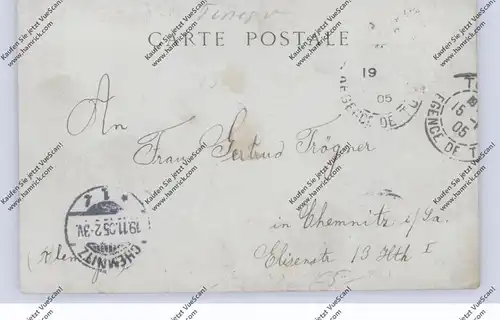 CARTE POSTALE
19
05
REGENCE DE
15
05
EGENCE DE T
An
Frau Gertrud Trögner
in Chemnitz i/Sa.
Elisenstr 13 Hth I
19.11.05.2-3N.
CHEMNITZ
Kaufen Sie jetzt VueScan!
www.hamrick.com